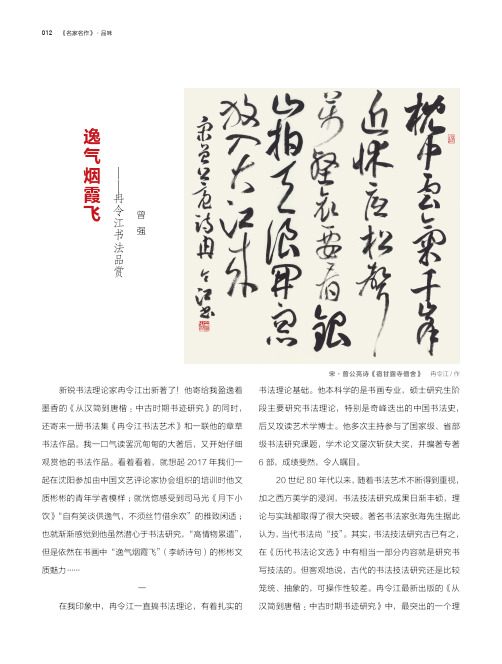 012 《名家名作》· 品味
逸气烟霞飞
——冉令江书法品赏
曾 强
枕中雲氣千峰
近牀底松聲
萬壑哀要看銀
山拍天浪開窗
放入大江來
宋曾公亮詩冉令江書
宋·曾公亮诗《宿甘露寺僧舍》 冉令江 / 作
新锐书法理论家冉令江出新著了！他寄给我盈逸着
墨香的《从汉简到唐楷：中古时期书迹研究》的同时，
还寄来一册书法集《冉令江书法艺术》和一联他的章草
书法作品。我一口气读罢沉甸甸的大著后，又开始仔细
观赏他的书法作品。看着看着，就想起 2017 年我们一
起在沈阳参加由中国文艺评论家协会组织的培训时他文
质彬彬的青年学者模样；就恍惚感受到司马光《月下小
饮》“自有笑谈供逸气，不须丝竹借余欢”的雅致闲适；
也就渐渐感觉到他虽然潜心于书法研究，“高情物累遣”，
但是依然在书画中“逸气烟霞飞”（李峤诗句）的彬彬文
质魅力……
一
在我印象中，冉令江一直搞书法理论，有着扎实的
书法理论基础。他本科学的是书画专业，硕士研究生阶
段主要研究书法理论，特别是奇峰迭出的中国书法史，
后又攻读艺术学博士。他多次主持参与了国家级、省部
级书法研究课题，学术论文屡次斩获大奖，并编著专著
6 部，成绩斐然，令人瞩目。
20 世纪 80 年代以来，随着书法艺术不断得到重视，
加之西方美学的浸润，书法技法研究成果日渐丰硕，理
论与实践都取得了很大突破。著名书法家张海先生据此
认为，当代书法尚“技”。其实，书法技法研究古已有之，
在《历代书法论文选》中有相当一部分内容就是研究书
写技法的。但客观地说，古代的书法技法研究还是比较
笼统、抽象的，可操作性较差。冉令江最新出版的《从
汉简到唐楷：中古时期书迹研究》中，最突出的一个理